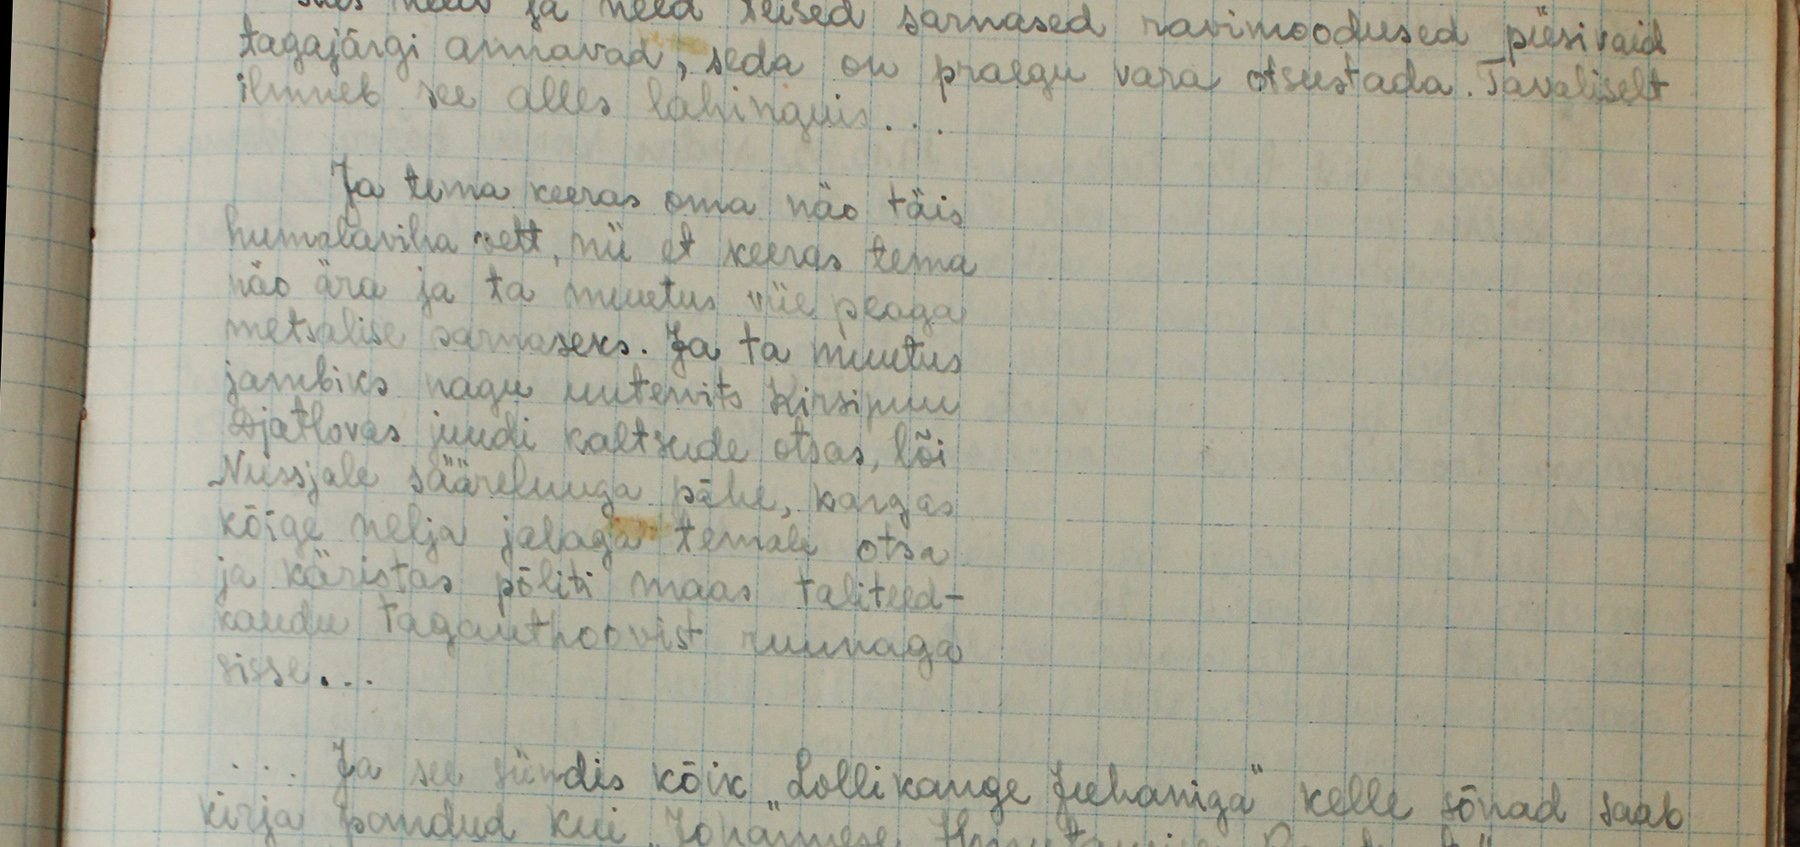 need ja need teised sarnased ravimoodused püsivaid
tagajärgi annavad, seda on praegu vara otsustada. Tavaliselt
ilmneb see alles lahinguis...
Ja tema keeras oma näo täis
humalaviha vett, nii et keeras tema
näo ära ja ta muutus viie peaga
metsalise sarnaseks. Ja ta muutus
jambiks nagu Kirsipuu
Djatlovas juudi kaltsude otsas, lõi
Nussjale sääreluuga pähe, kargas
kõige nelja jalaga temale otsa
ja käristas põliti maas taliteed-
kaudu taganthoovist ruunaga
sisse...
... Ja see sündis kõik "Lollikange Juhaniga" kelle sõnad saab
kirja pandud kui